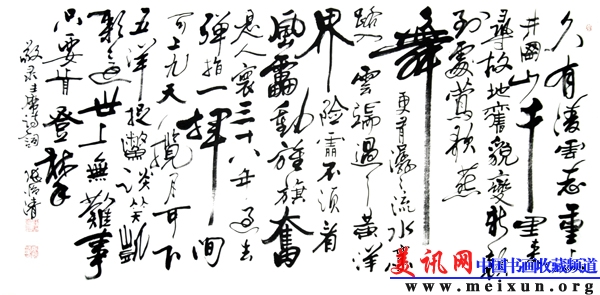 久有凌云志重上
井岡山千里来
尋故地舊貌變新顏
到處鶯歌燕
舞
更有潺潺流水高
路入雲端過了黄洋
界险處不须看
風雷動旌旗奮
是人寰三十八年过去
弹指一揮間
可上九天攬月可下
五洋捉鱉談笑凱
歌還世上無難事
只要肯登攀
敬录主席詩詞
美讯网 中国书画收藏频道
www.meixun.org